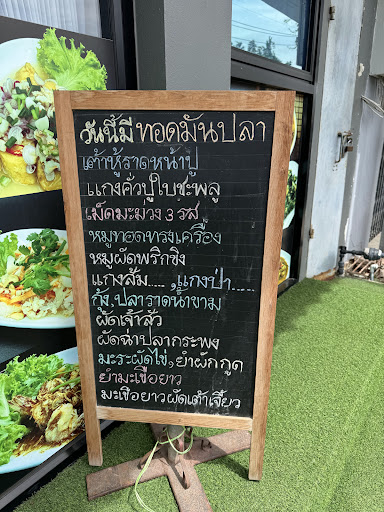 วันนี้มี ทอดมันปลา
เต้าหู้ราดหน้าปู
แกงคั่วปูใบชะพลู
เม็ดมะม่วง 3 รส
หมูทอดทรงเครื่อง
หมูผัดพริกขิง
แกงส้ม...., แกงป่า.....
กุ้ง, ปลาราดน้ำขาม
ผัดเจ้าสัว
ผัดฉ่าปลากระพง
มะระผัดไข่, ยำผักกูด
ยำมะเขือยาว
มะเขือยาวผัดเต้าเจี้ยว